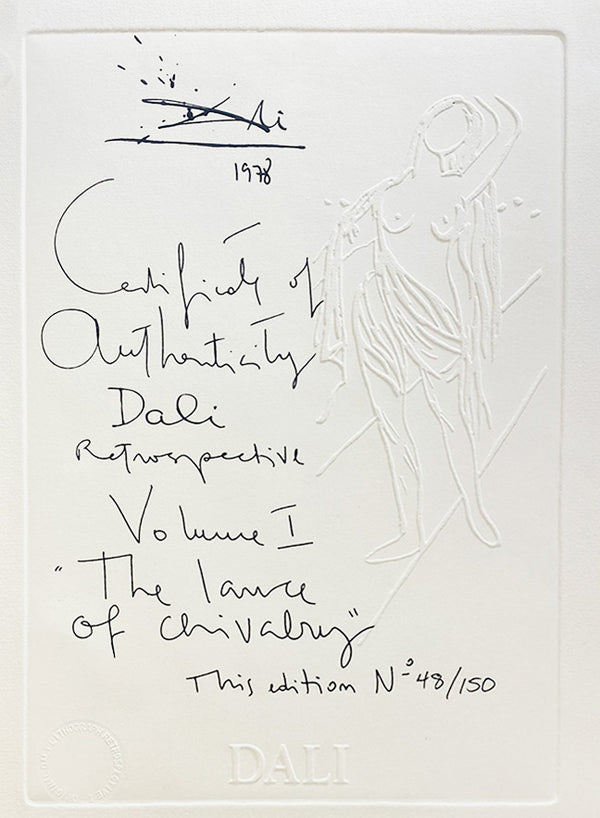 Dali
1978
Certificate of
Authenticity
Dali
Retrospective
Volume I
"The lance
of chivalry"
This edition Nº 48/150
DALI